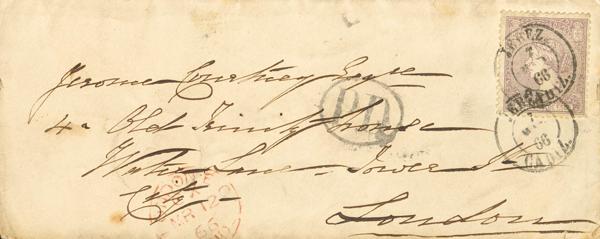 JEREZ
7
66
CADIZ
Jerome Courtney Esqre
PD
4a Old Trinity house
66
CADIZ
Water Lane - Tower St
City -
LONDON
MR 12
66
London